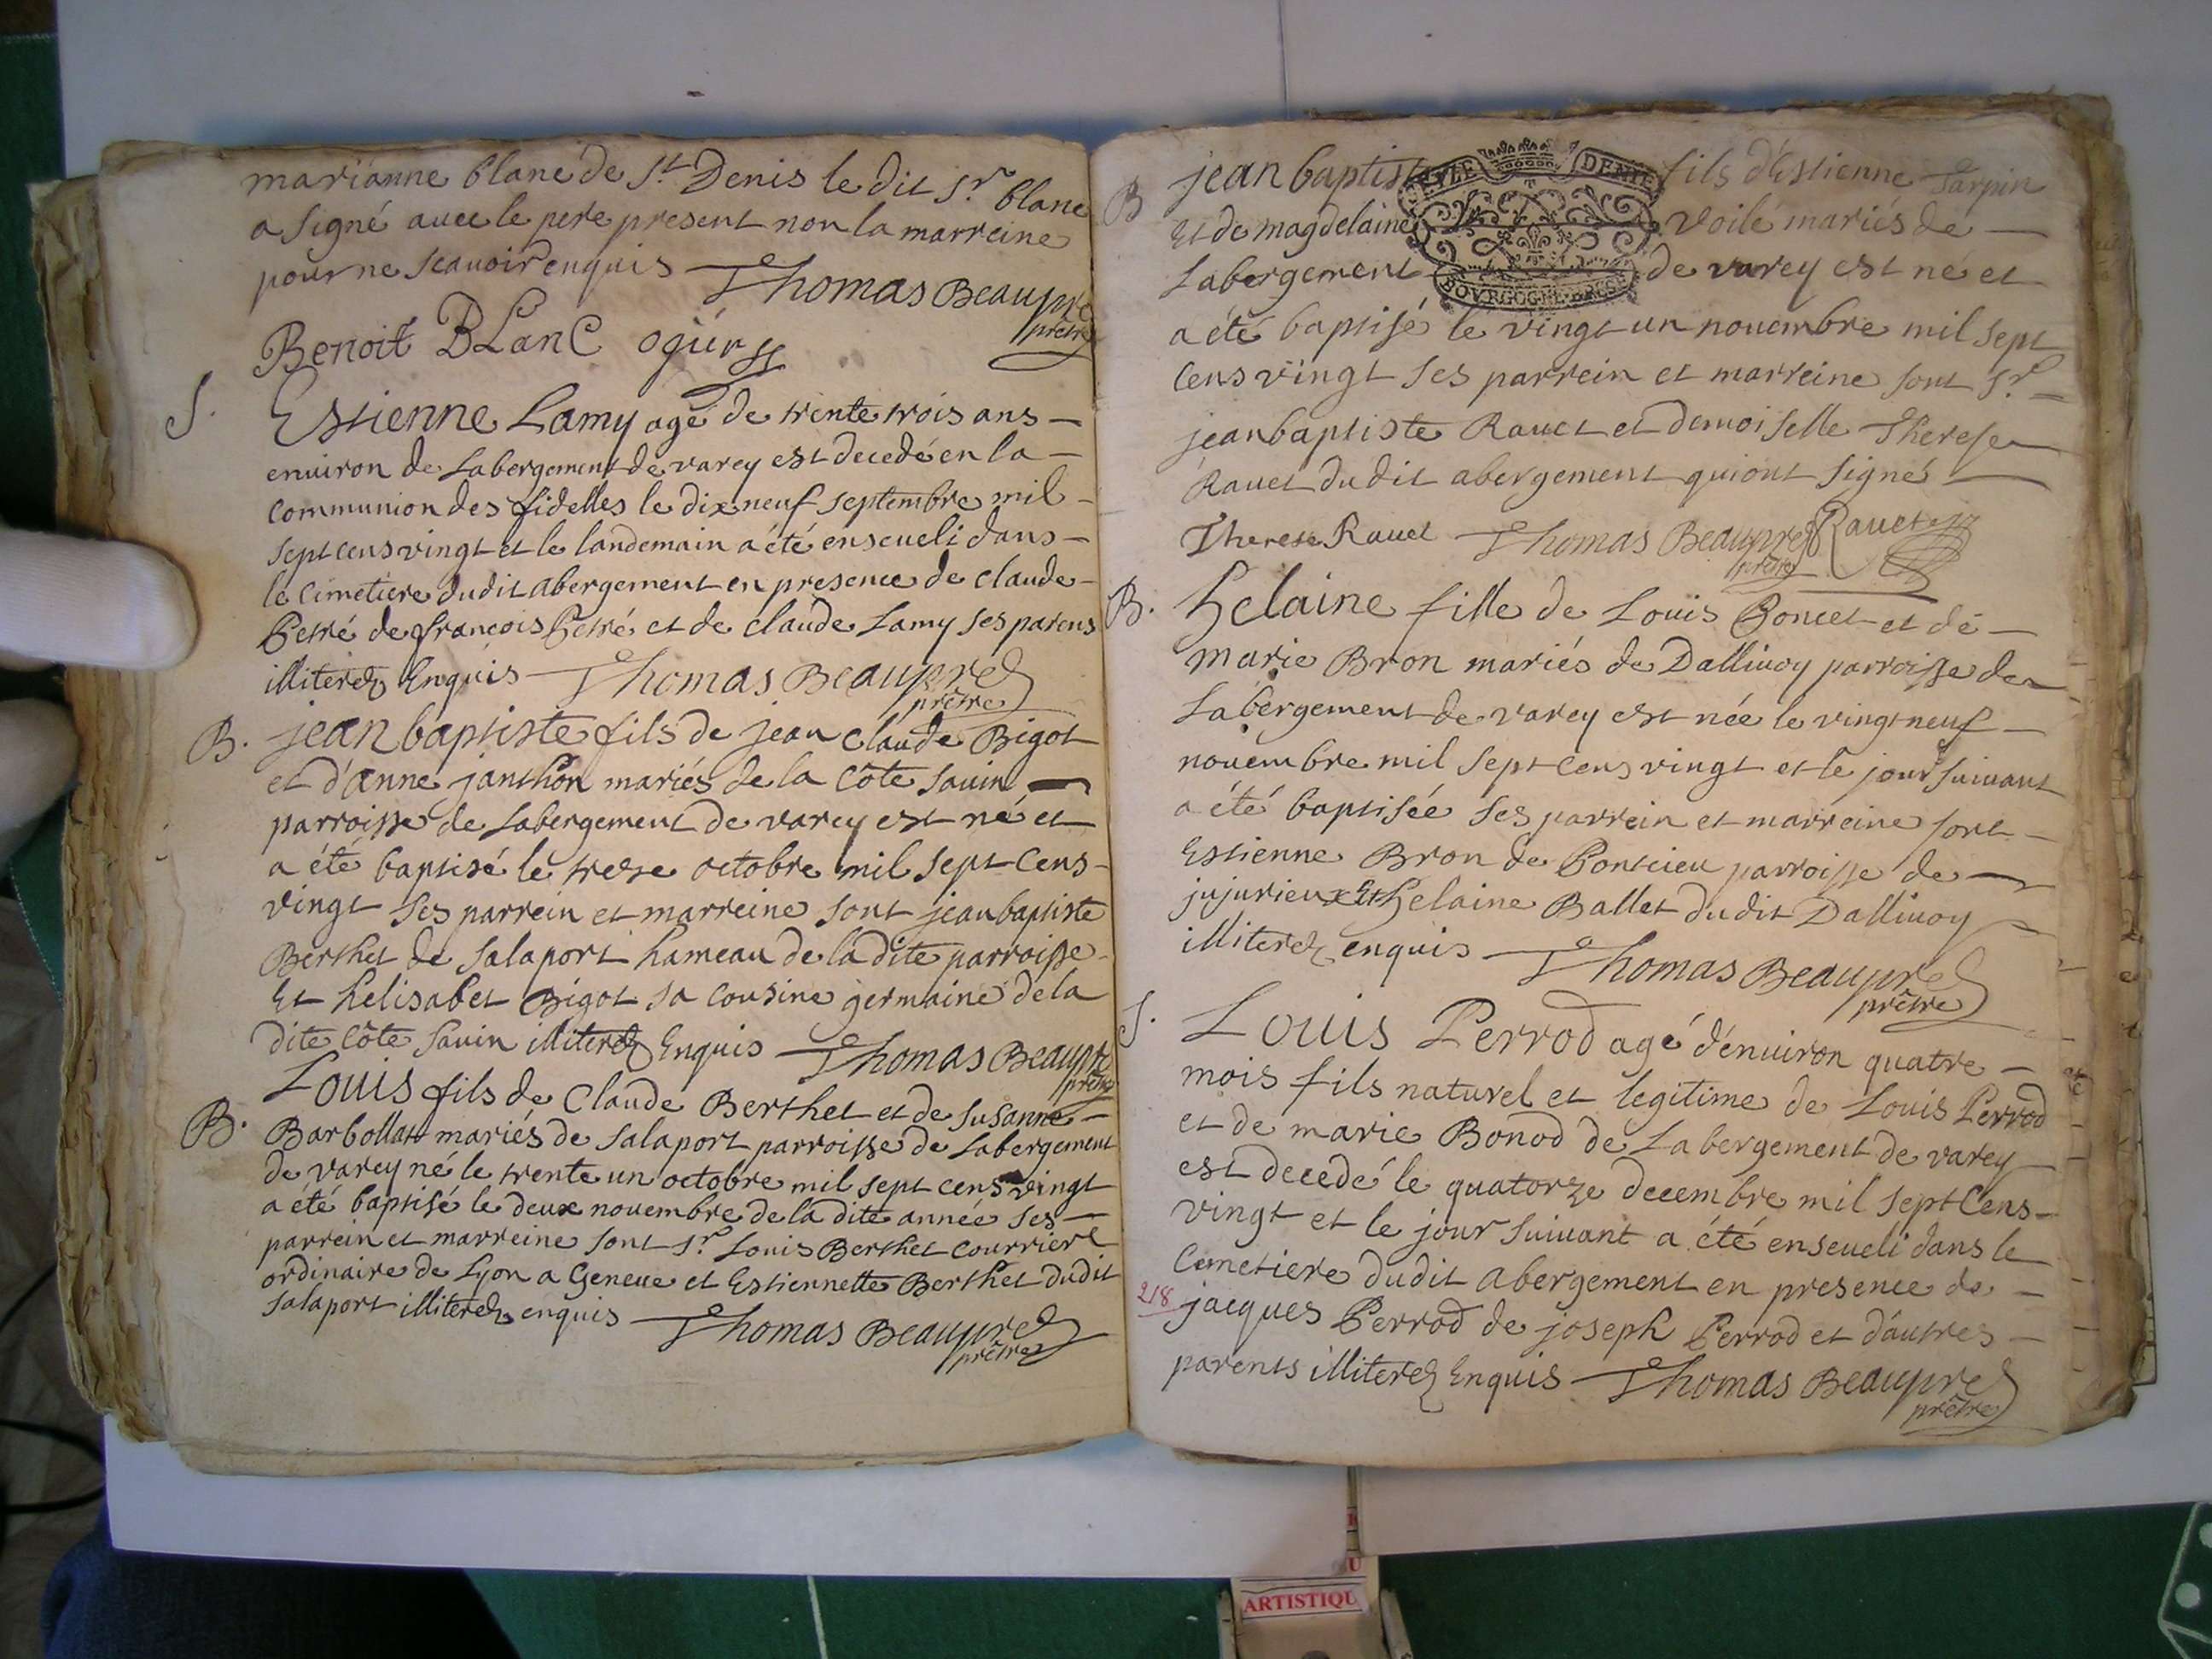 marianne blanc de St Denis le dit Sr. blanc
a signé auec le pere present non la marreine
pour ne scauoir enquis Thomas Beaupre
prêtre
Benoit BLanC ogier
S. Estienne Lamy agé de trente trois ans
enuiron de Labergement de varey est decedé en la
communion des fidelles le dix neuf septembre mil
sept cens vingt et le landemain a été enseueli dans
le cimetiere dudit abergement en presence de claude
Petré de francois Petré et de claude Lamy ses parens
illiterez Enquis Thomas Beaupre
prêtre
B. jean baptiste fils de jean claude Bigot
et d'anne janthon mariés de la Côte sauin
parroisse de Labergement de varey est né et
a été baptisé le treze octobre mil sept cens
vingt ses parrein et marreine sont jean baptiste
Berthet de salaport hameau de la dite parroisse
Et helisabet Bigot sa cousine germaine de la
dite Côte sauin illiterez Enquis Thomas Beaupre
prêtre
Louis fils de Claude Berthet et de susanne
B. Barbollat mariés de salaport parroisse de Labergement
de varey né le trente un octobre mil sept cens vingt
a été baptisé le deux nouembre de la dite année ses
parrein et marreine sont sr. Louis Berthet courrier
ordinaire de Lyon a Geneue et Estiennette Berthet dudit
salaport illiterez enquis Thomas Beaupre
prêtre
B jean baptist fils d'Estienne Tarpin
Et de magdelaine voile mariés de
Labergement de varey est né et
GENERALITE DE
BOURGOGNE
a été baptisé le vingt un nouembre mil sept
cens vingt ses parrein et marreine sont sr.
jean baptiste Rauet et demoiselle Therese
Rauet dudit abergement qui ont signé
Therese Rauet Thomas Beaupre Rauet
prêtre
B. helaine fille de Louis Poncet et de
marie Bron mariés de Dalliuoy parroisse de
Labergement de varey est née le vingt neuf
nouembre mil sept cens vingt et le jour suiuant
a été baptisée ses parrein et marreine sont
Estienne Bron de Poncieu parroisse de
jujurieux Et helaine Ballet dudit Dalliuoy
illiterez enquis Thomas Beaupre
prêtre
S. Louis Perrod agé d'enuiron quatre
mois fils naturel et legitime de Louis Perrod
et de marie Bonod de Labergement de varey
est decedé le quatorze decembre mil sept Cens
vingt et le jour suiuant a été enseueli dans le
Cemetiere dudit abergement en presence de
218 jacques Perrod de joseph Perrod et d'autres
parents illiterez Enquis Thomas Beaupre
prêtre
ARTISTIQU